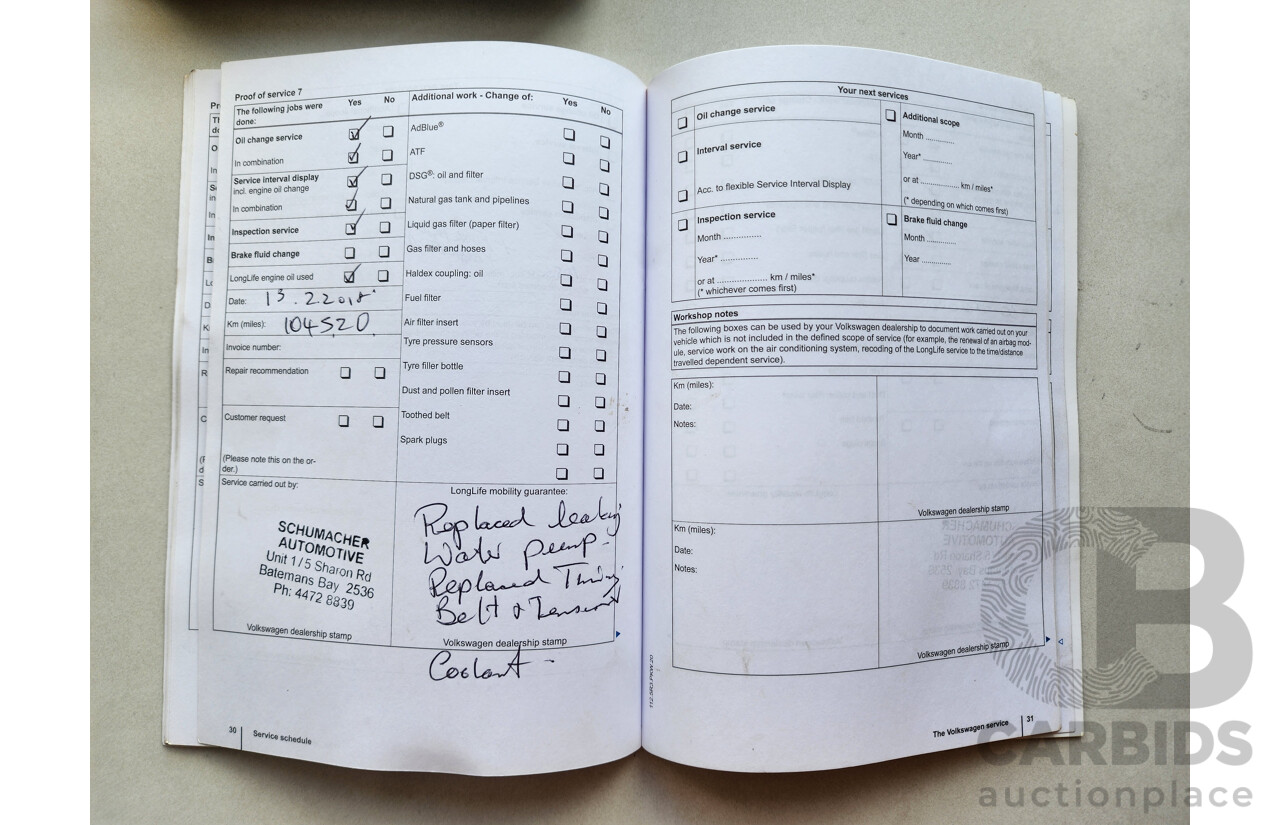 Proof of service 7
The following jobs were done: Yes No
Oil change service
In combination
Service interval display
incl. engine oil change
In combination
Inspection service
Brake fluid change
LongLife engine oil used
Date: 13.2.2018
Km (miles): 104520
Invoice number:
Repair recommendation
Customer request
(Please note this on the or-
der.)
Additional work - Change of: Yes No
AdBlue®
ATF
DSG®: oil and filter
Natural gas tank and pipelines
Liquid gas filter (paper filter)
Gas filter and hoses
Haldex coupling: oil
Fuel filter
Air filter insert
Tyre pressure sensors
Tyre filler bottle
Dust and pollen filter insert
Toothed belt
Spark plugs
Service carried out by:
SCHUMACHER
AUTOMOTIVE
Unit 1/5 Sharon Rd
Batemans Bay 2536
Ph: 4472 8839
Volkswagen dealership stamp
LongLife mobility guarantee:
Replaced leaking
Water pump -
Replaced Timing
Belt & Tensioner
Volkswagen dealership stamp
Coolant -
30 Service schedule
Your next services
Oil change service
Interval service
Acc. to flexible Service Interval Display
Inspection service
Month ..............
Year* ..............
or at .................... km / miles*
(* whichever comes first)
Additional scope
Month ..............
Year* ..............
or at .................... km / miles*
(* depending on which comes first)
Brake fluid change
Month ..............
Year ..............
Workshop notes
The following boxes can be used by your Volkswagen dealership to document work carried out on your
vehicle which is not included in the defined scope of service (for example, the renewal of an airbag mod-
ule, service work on the air conditioning system, recoding of the LongLife service to the time/distance
travelled dependent service).
Km (miles):
Date:
Notes:
Volkswagen dealership stamp
Km (miles):
Date:
Notes:
Volkswagen dealership stamp
The Volkswagen service 31
CARBIDS
auctionplace